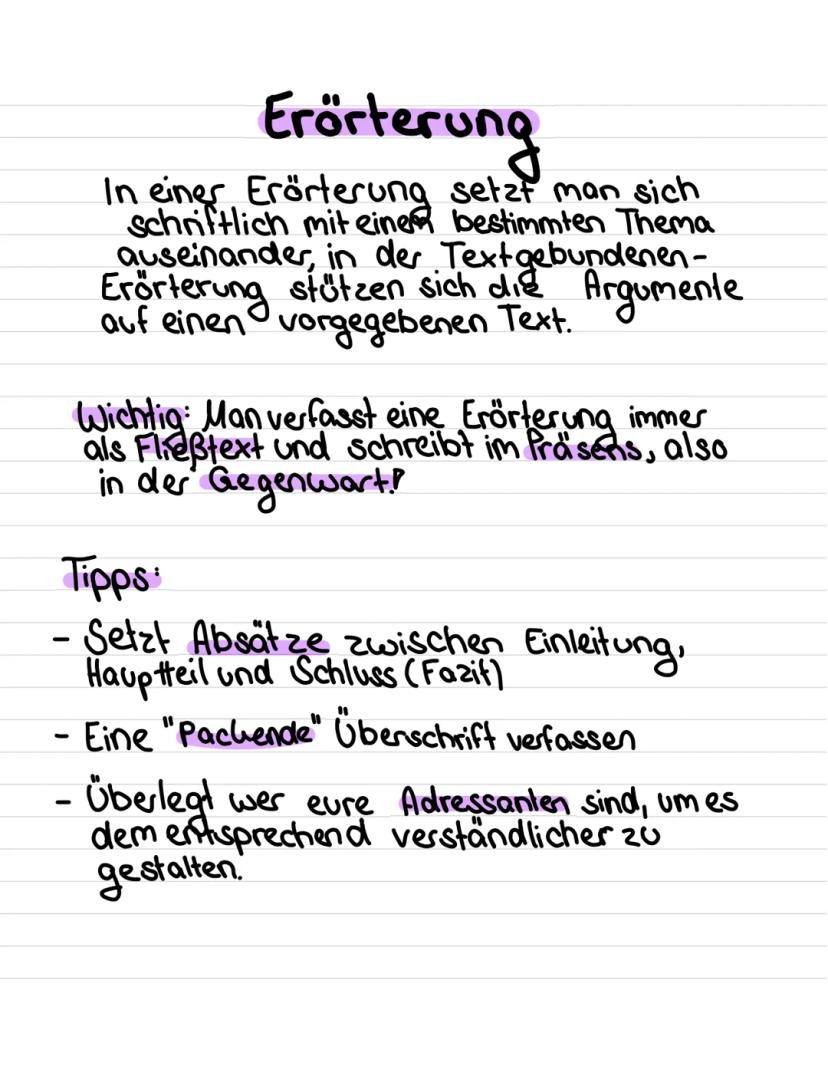 Erörterung
In einer Erörterung setzt man sich
schriftlich mit einem bestimmten Thema
auseinander, in der Textgebundenen-
Erörterung stützen sich die Argumente
auf einen vorgegebenen Text.
Wichtig: Man verfasst eine Erörterung immer
als Fließtext und schreibt im Präsens, also
in der Gegenwart!
Tipps:
- Setzt Absätze zwischen Einleitung,
Hauptteil und Schluss (Fazit)
- Eine "Packende" Überschrift verfassen
- Überlegt wer eure Adressanten sind, um es
dem entsprechend verständlicher zu
gestalten.